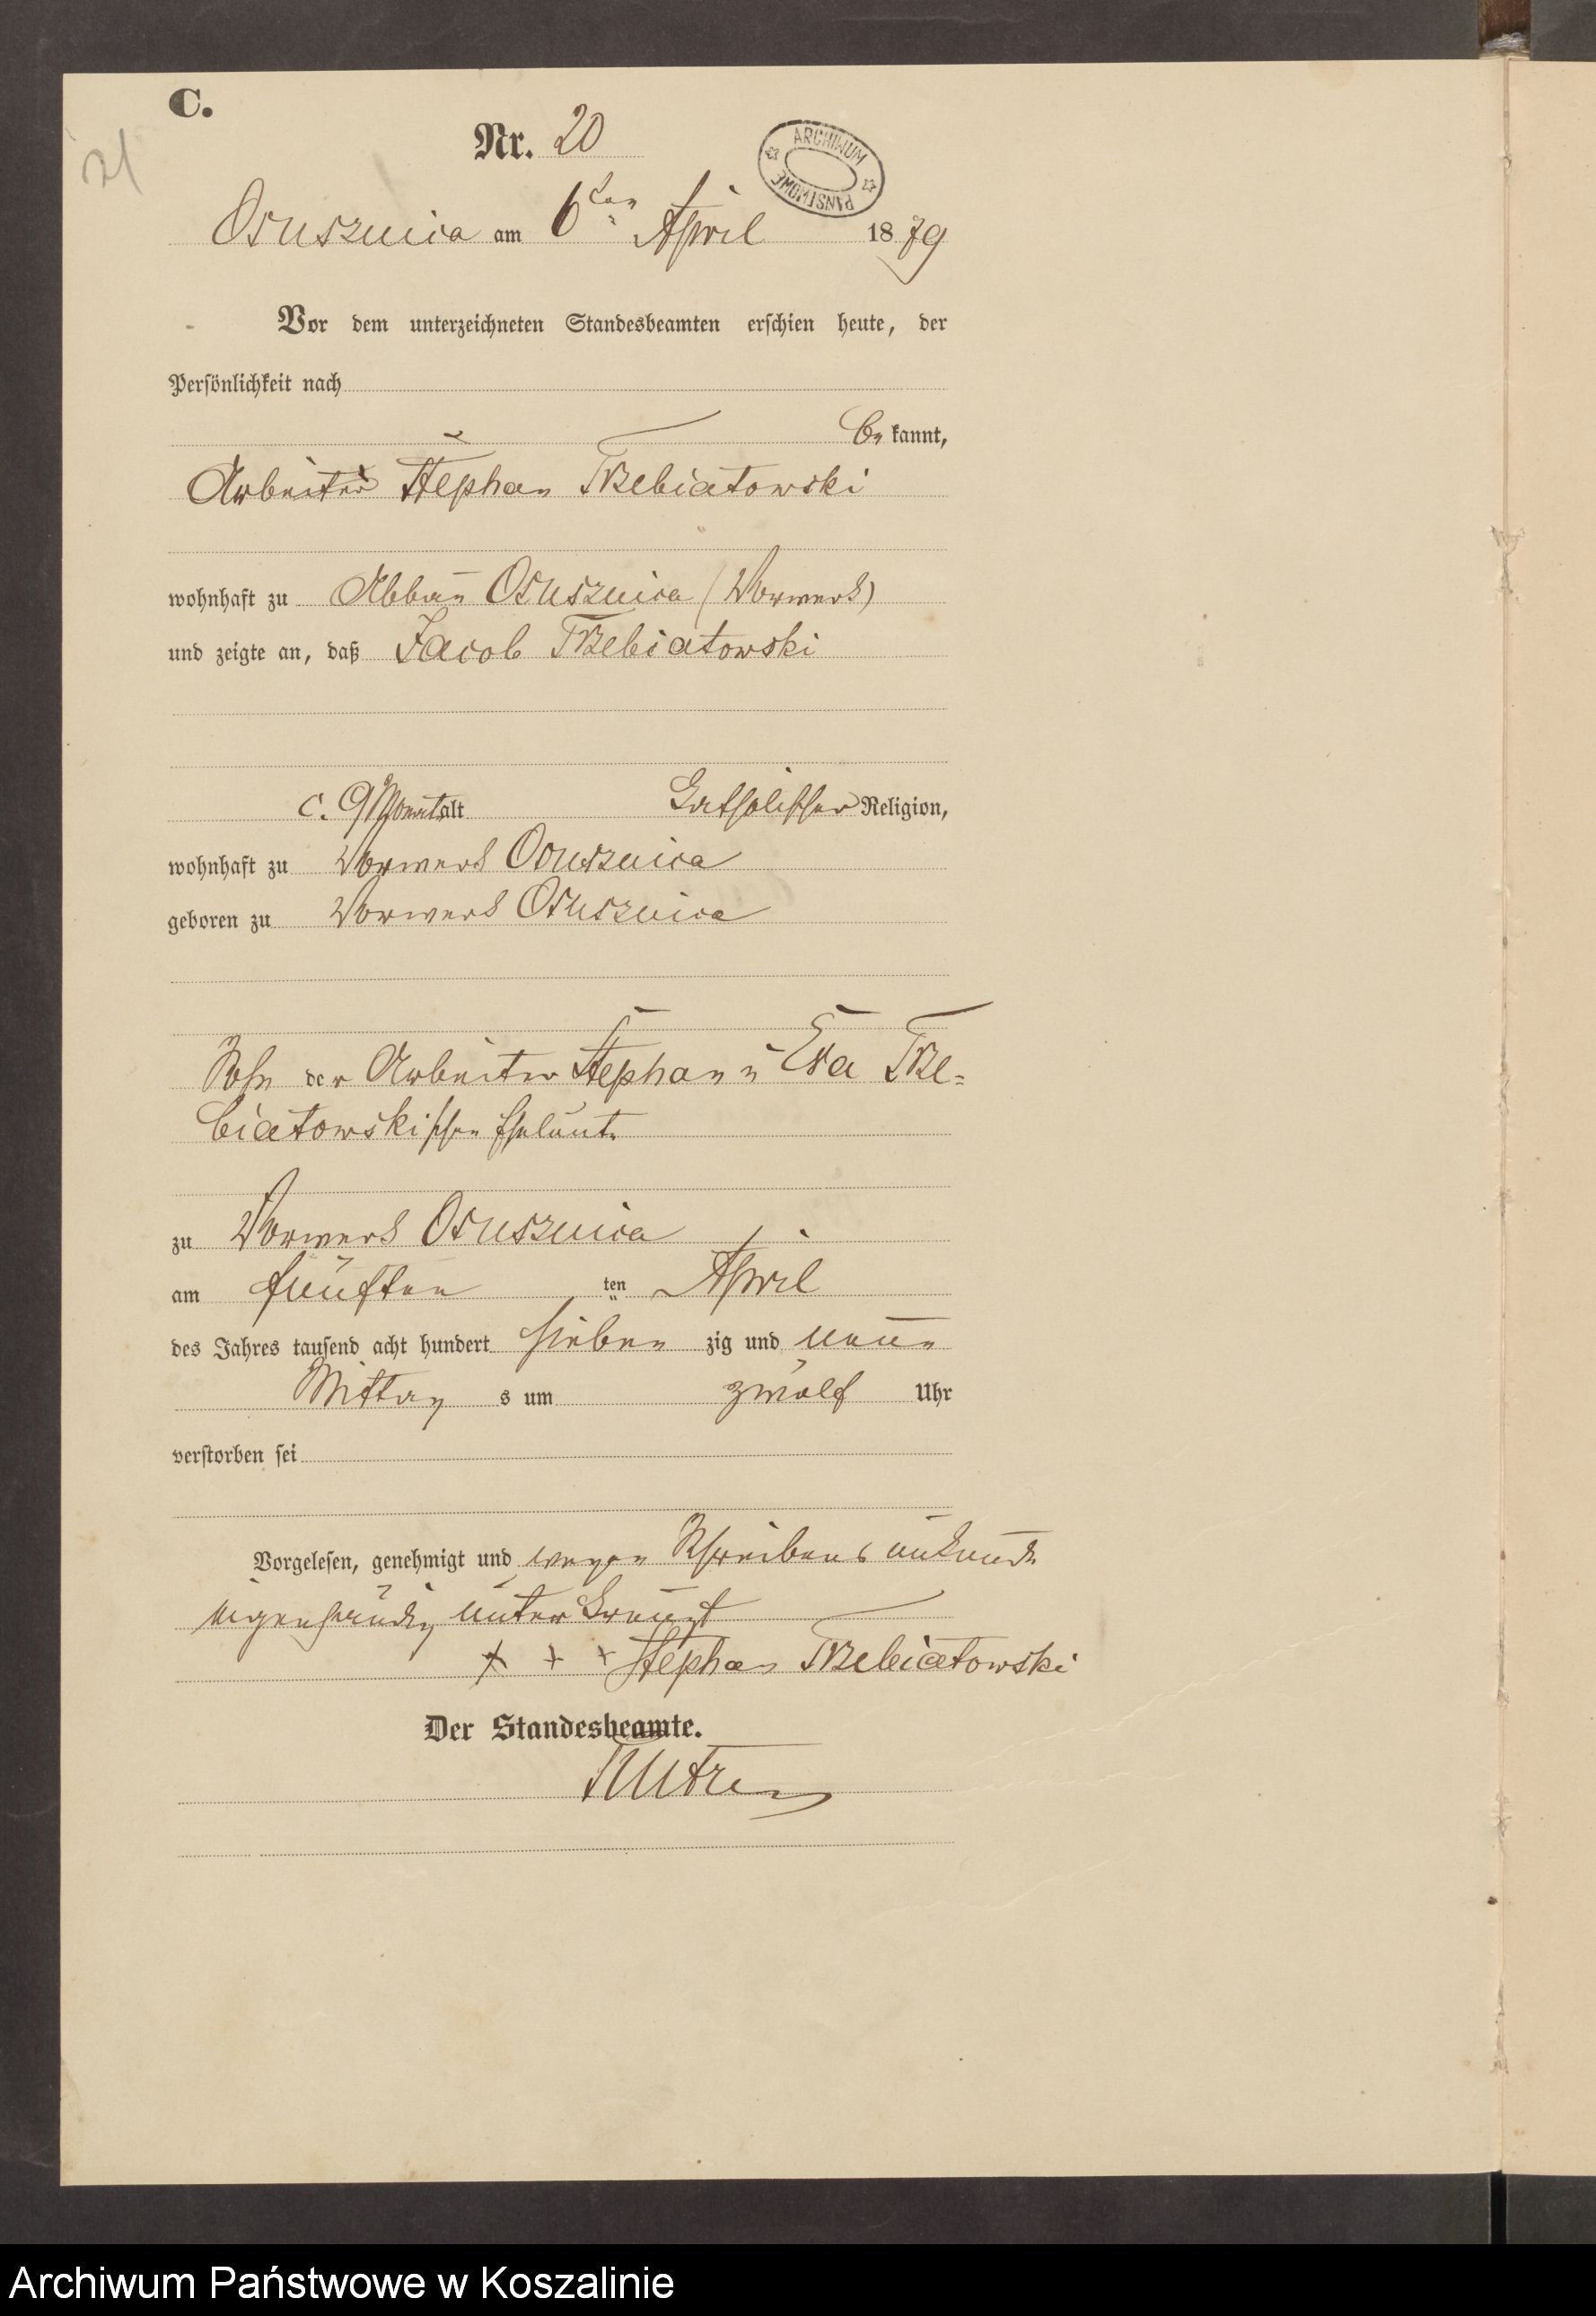 C.
21
Nr. 20
ARCHIWUM PAŃSTWOWE
Osusznica am 6ten April 1879
Vor dem unterzeichneten Standesbeamten erschien heute, der
Persönlichkeit nach
be kannt,
Arbeiter Stephan Trzebiatowski
wohnhaft zu Abbau Osusznica (Vorwerk)
und zeigte an, daß Jacob Trzebiatowski
c. 9 Monat alt katholischer Religion,
wohnhaft zu Vorwerk Osusznica
geboren zu Vorwerk Osusznica
Sohn der Arbeiter Stephan u Eva Trze=
biatowskischen Eheleute
zu Vorwerk Osusznica
am fünften ten April
des Jahres tausend acht hundert sieben zig und neun
Mittag s um zwölf Uhr
verstorben sei
Vorgelesen, genehmigt und wegen Schreibens unkunde
eigenhändig unterkreuzt
+ + + Stephan Trzebiatowski
Der Standesbeamte.
Archiwum Państwowe w Koszalinie